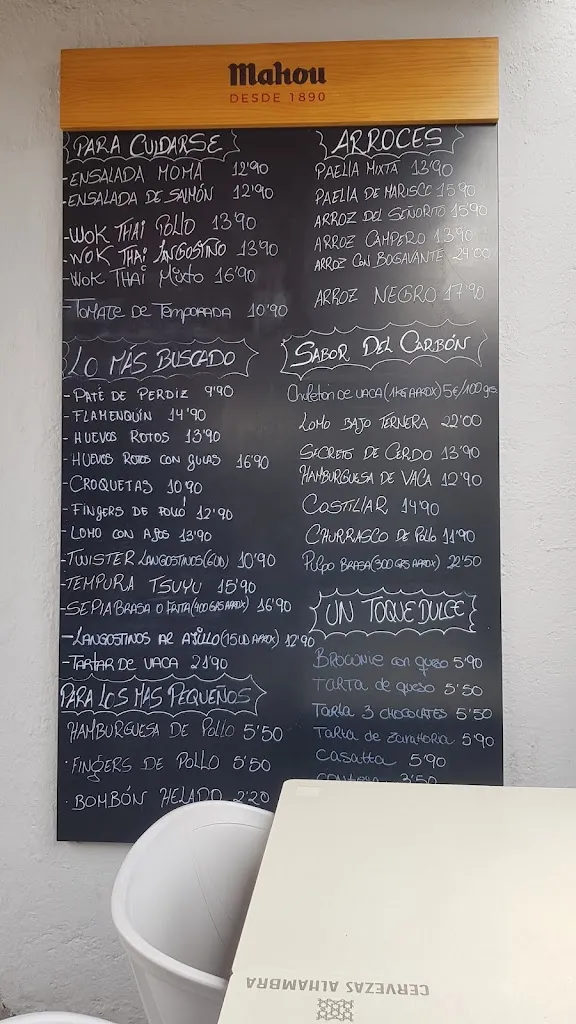 Mahou
DESDE 1890
PARA CUIDARSE
-ENSALADA MOMA 12'90
-ENSALADA DE SALMÓN 12'90
-WOK THAI POLLO 13'90
-WOK THAI LANGOSTINO 13'90
-WOK THAI MIXTO 16'90
-TOMATE DE TEMPORADA 10'90
LO MÁS BUSCADO
-PATÉ DE PERDIZ 9'90
-FLAMENQUÍN 14'90
-HUEVOS ROTOS 13'90
-HUEVOS ROTOS CON GULAS 16'90
-CROQUETAS 10'90
-FINGERS DE POLLO 12'90
-LOMO CON AJOS 13'90
-TWISTER LANGOSTINOS (6UD) 10'90
-TEMPURA TSUYU 15'90
-SEPIA BRASA O FRITA (400 GRS APROX) 16'90
-LANGOSTINOS AL AJILLO (15 UD APROX) 12'90
-TARTAR DE VACA 21'90
PARA LOS MAS PEQUEÑOS
·HAMBURGUESA DE POLLO 5'50
·FINGERS DE POLLO 5'50
·BOMBÓN HELADO 2'20
ARROCES
PAELLA MIXTA 13'90
PAELLA DE MARISCO 15'90
ARROZ DEL SEÑORITO 15'90
ARROZ CAMPERO 13'90
ARROZ CON BOGAVANTE 24'00
ARROZ NEGRO 17'90
SABOR DEL CARBÓN
Chuletón DE VACA (1KG APROX) 5€/100grs.
LOMO BAJO TERNERA 22'00
SECRETO DE CERDO 13'90
HAMBURGUESA DE VACA 12'90
COSTILLAR 14'90
CHURRASCO DE POLLO 11'90
PULPO BRASA (300 GRS APROX) 22'50
UN TOQUE DULCE
BROWNIE con queso 5'90
TARTA de queso 5'50
TARTA 3 CHOCOLATES 5'50
Tarta de zanahoria 5'90
casatta 5'90
3'50
CERVEZAS ALHAMBRA